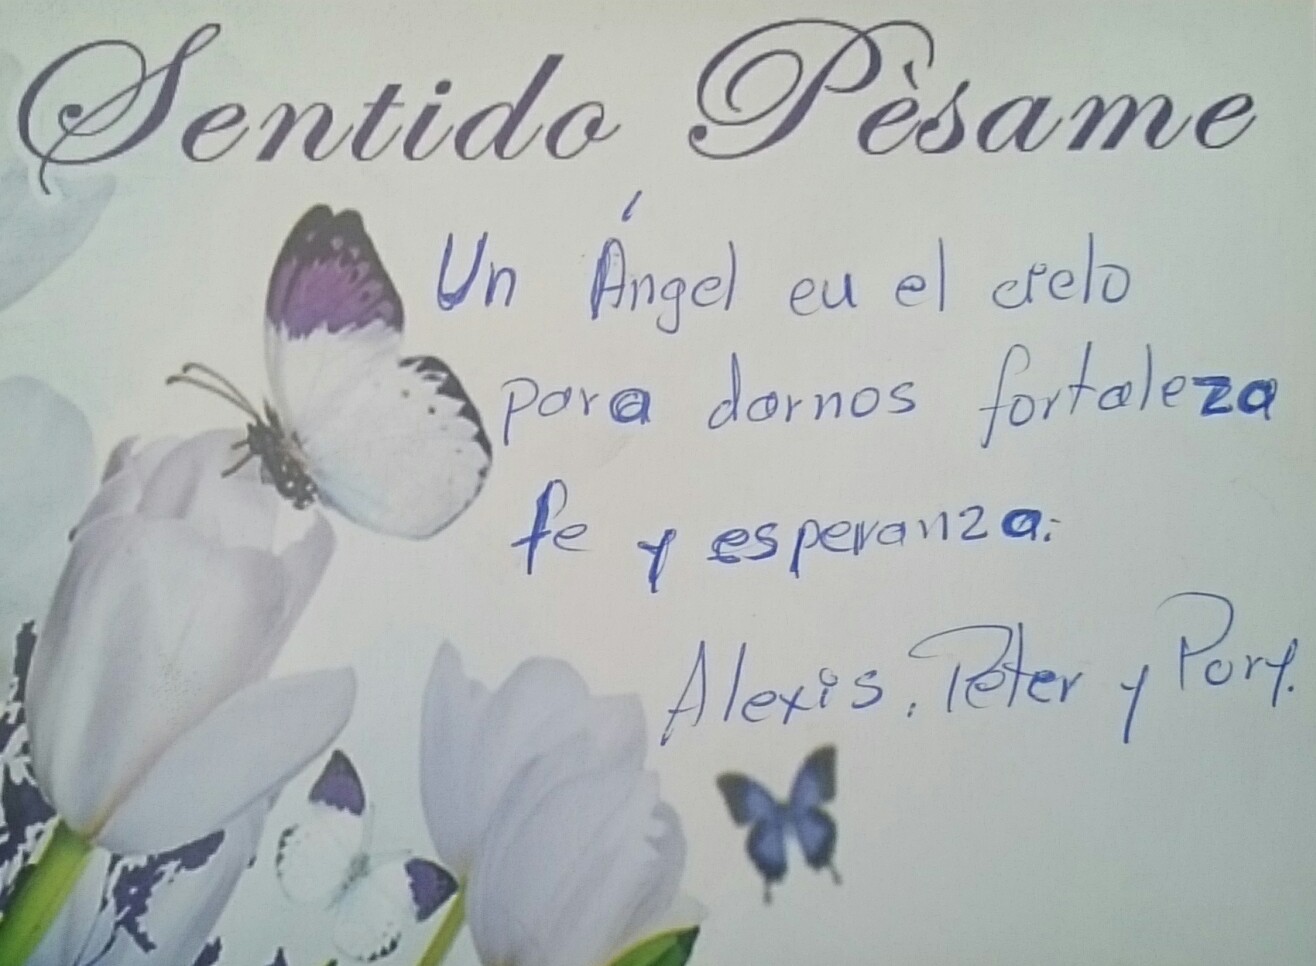 Sentido Pèsame
Un Ángel en el cielo
para darnos fortaleza
fe y esperanza.
Alexis, Peter y Pory.